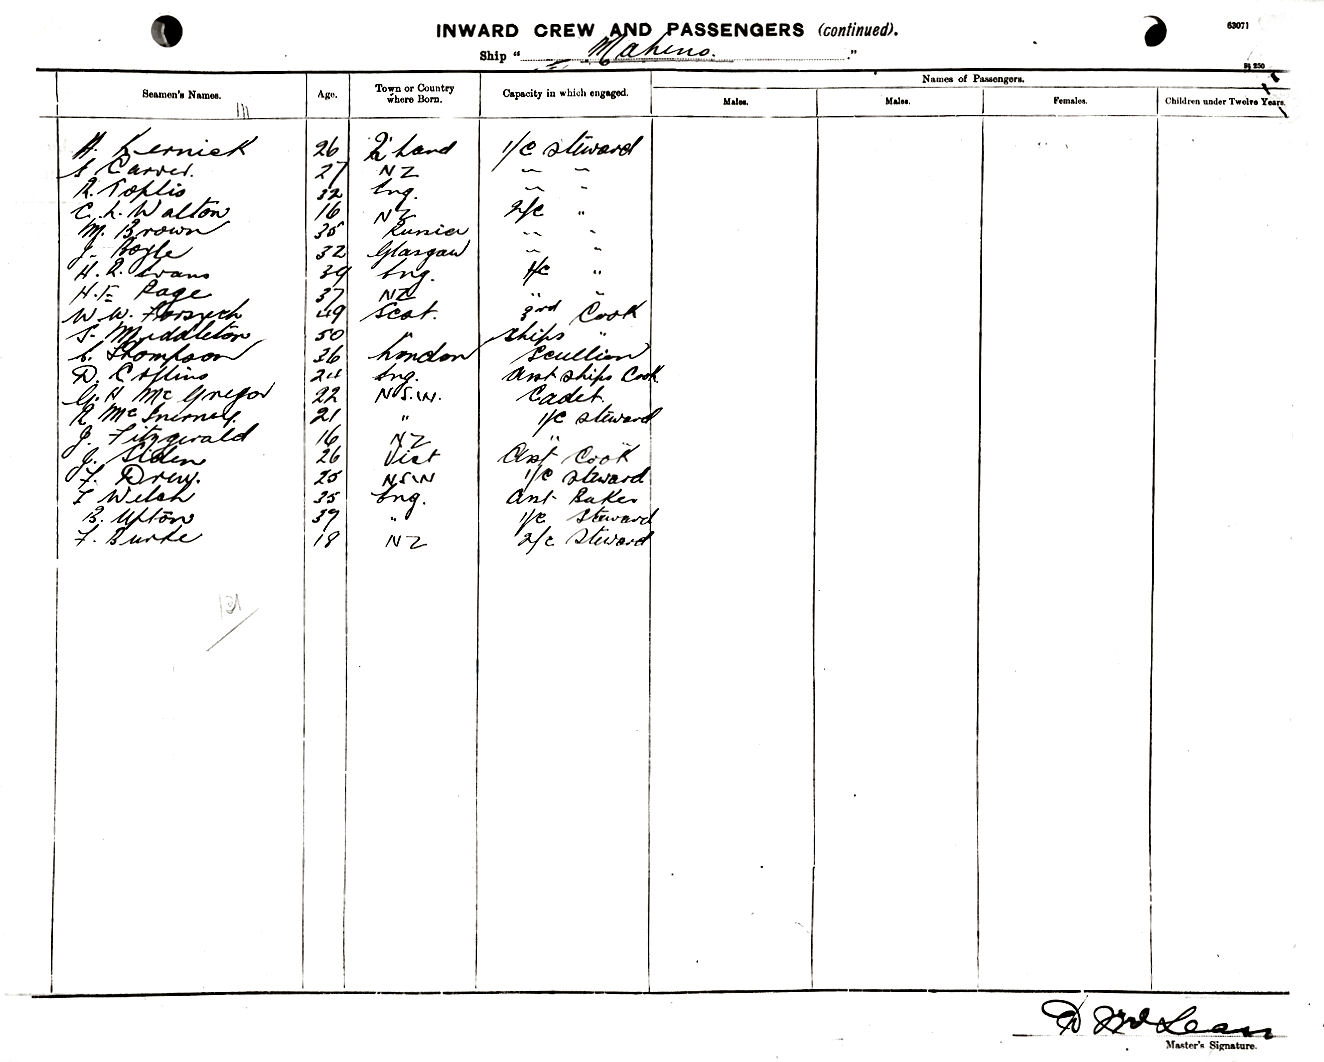 63071
INWARD CREW AND PASSENGERS (continued).
Ship " Maheno. "
Seamen's Names. Age. Town or Country where Born. Capacity in which engaged. Names of Passengers.
Males. Males. Females. Children under Twelve Years.
H. Kernick 26 Q'land 1/c Steward
Carver. 27 NZ " "
R. Toplis 32 Eng. " "
C. L. Walton 16 NZ 2/c "
M. Brown 35 Russia " "
J. Boyle 32 Glasgow " "
H. R. Evans 39 Eng. 1/c "
H. F. Page 37 NZ " "
W. W. 49 Scot. 3rd Cook
S. Middleton 50 " Ships "
Thompson 36 London Scullion
D. Collins 24 Eng. Asst Ships Cook
G. H McGregor 22 N.S.W. Cadet.
R McInerney. 21 " 1/c Steward
J. Fitzgerald 16 NZ " "
J. 26 Vict Asst Cook
F. Drew. 25 NSW 1/c Steward
F Welsh 35 Eng. Asst Baker
B. Upton 39 " 1/c Steward
F. Burke 18 NZ 2/c Steward
121
D McLean
Master's Signature.